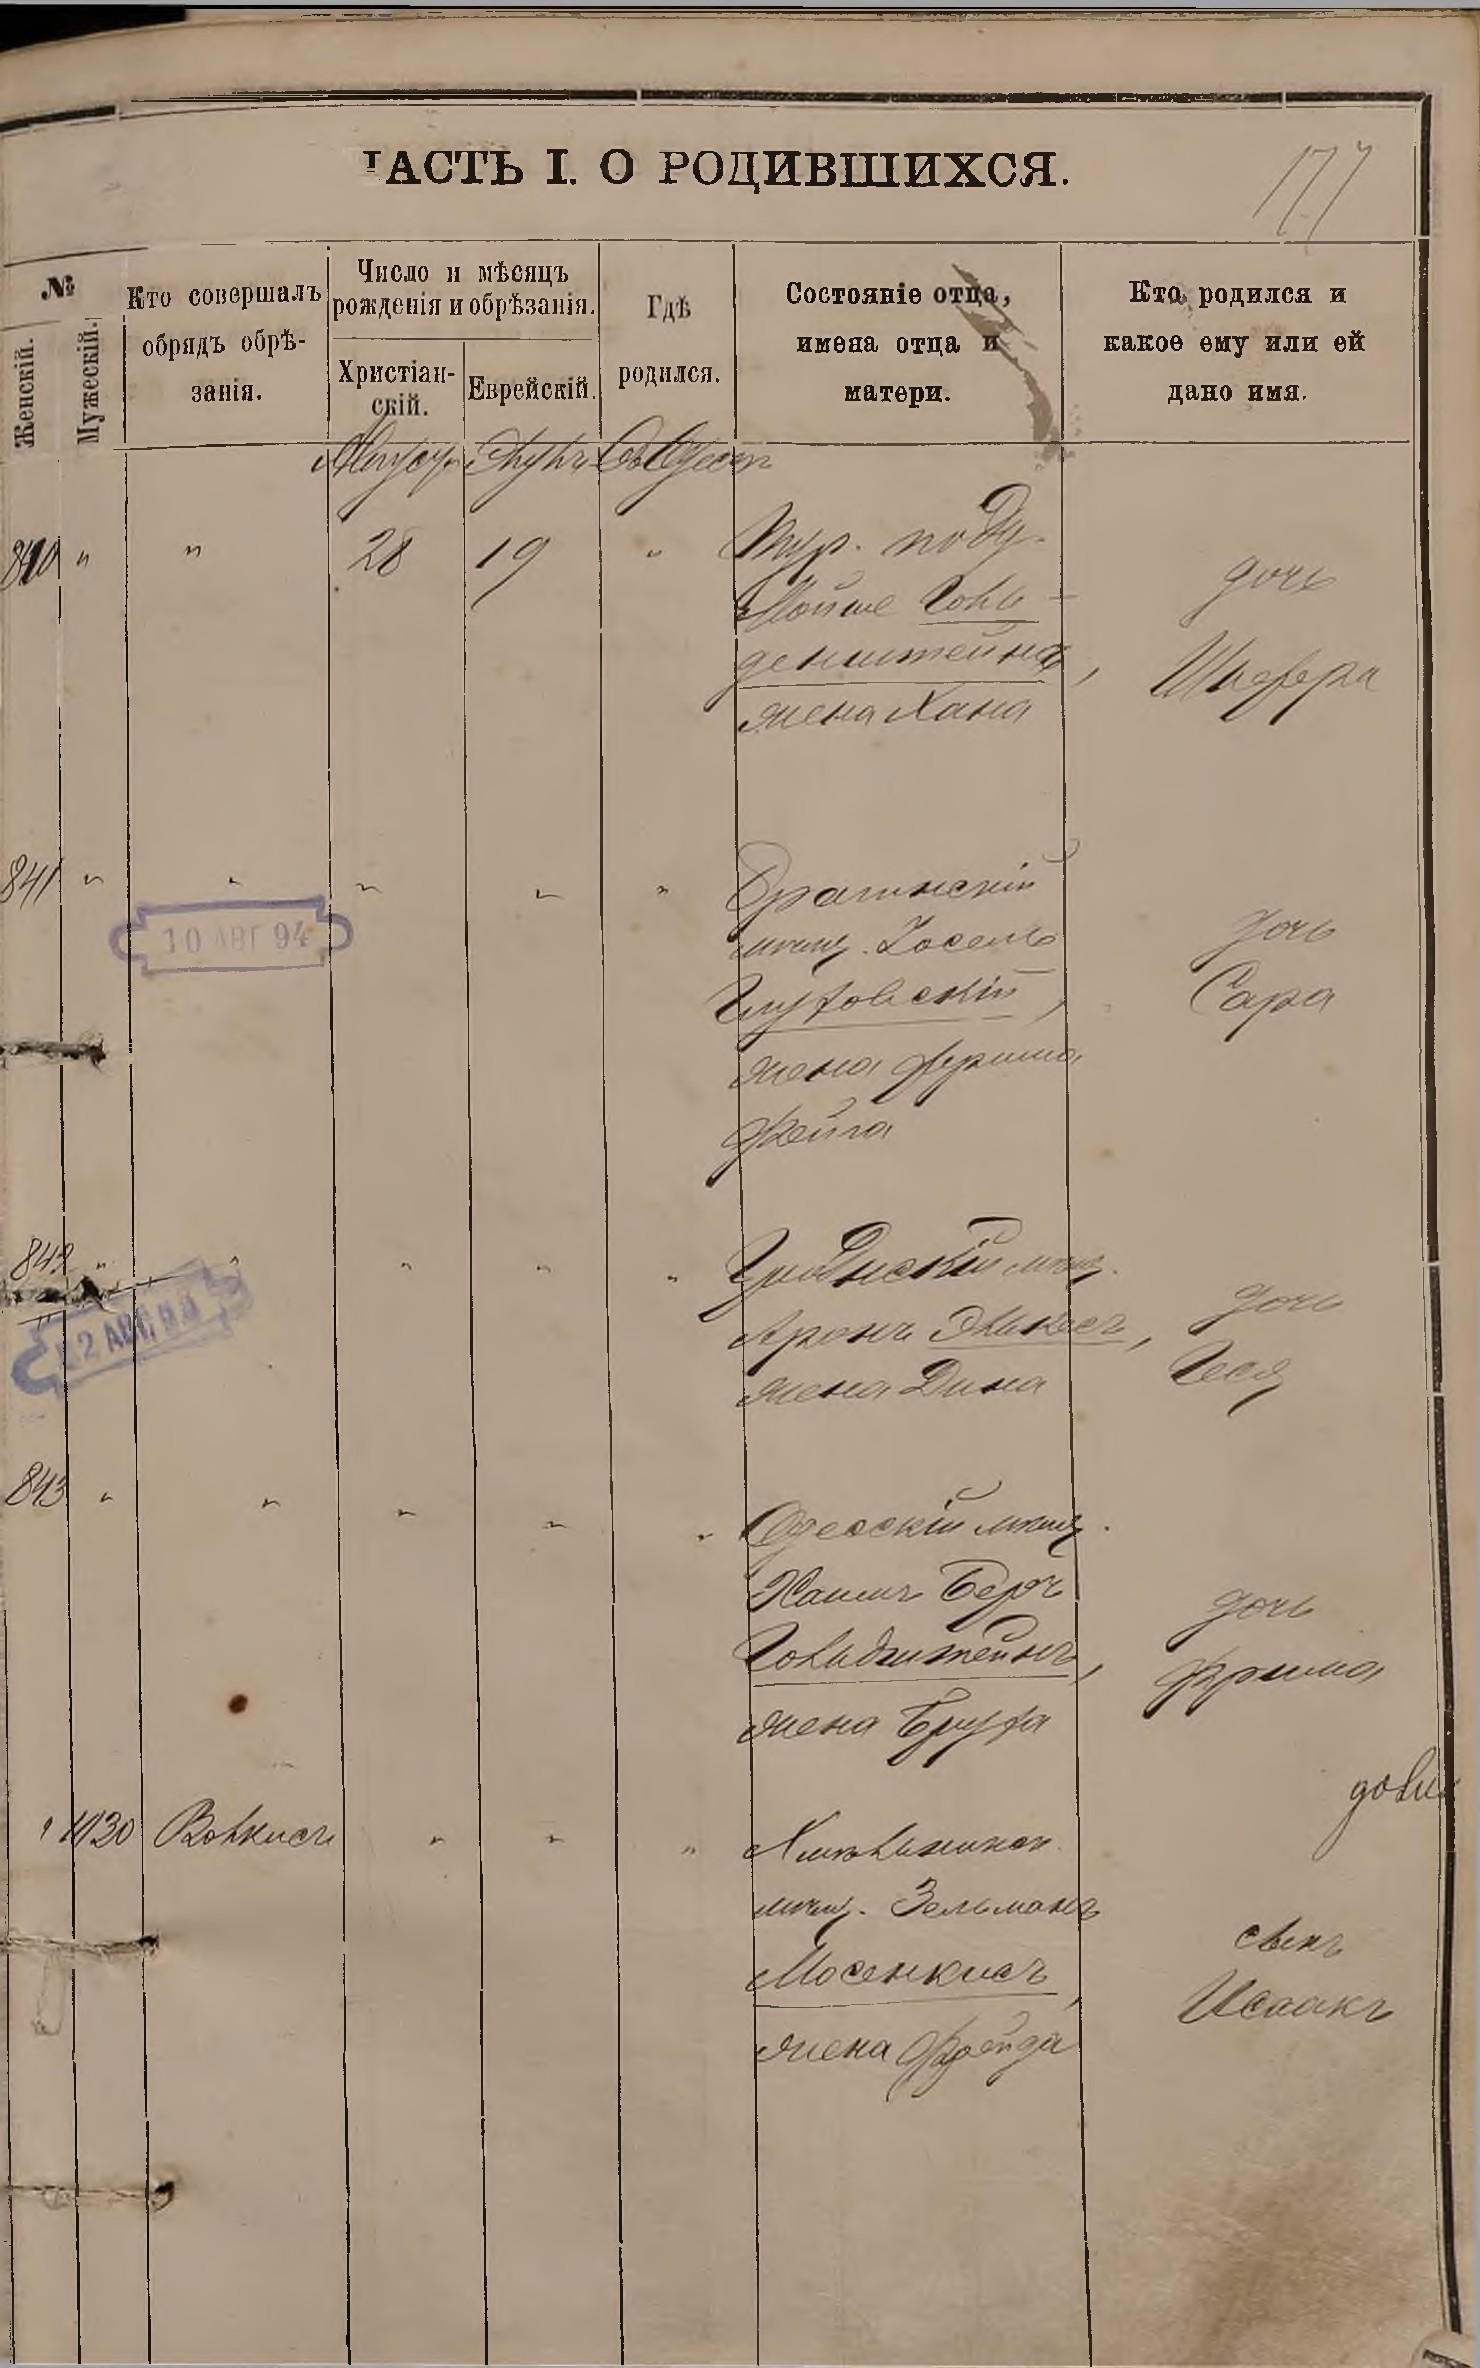 ЧАСТЬ I. О РОДИВШИХСЯ.
177
№
Женскій.
Мужескій.
Кто совершалъ
обрядъ обрѣ-
занія.
Число и мѣсяцъ
рожденія и обрѣзанія.
Христіан-
скій.
Еврейскій.
Гдѣ
родился.
Состояніе отца,
имена отца и
матери.
Кто родился и
какое ему или ей
дано имя.
Въ Одессѣ
840 " " 28 19 " Тур.подд.
Мойше Голь-
денштейнъ,
жена Хана
дочь
Шифра
841 " " " " "
10 АВГ 94
мѣщ. Іосель
Глуховскій,
жена Фрима
Фейга
дочь
Сара
842 " " " " " Гродненскій мѣщ.
2 АВГ
Аронъ
жена Дина
дочь
Геся
843 " " " " " Одесскій мѣщ.
Хаимъ Беръ
Гольдштейнъ,
жена Бруха
дочь
Фрима
" 1130 Волкисъ " " "
мѣщ. Зельманъ
Мосенкисъ,
жена Фрейда
сынъ
Исаакъ